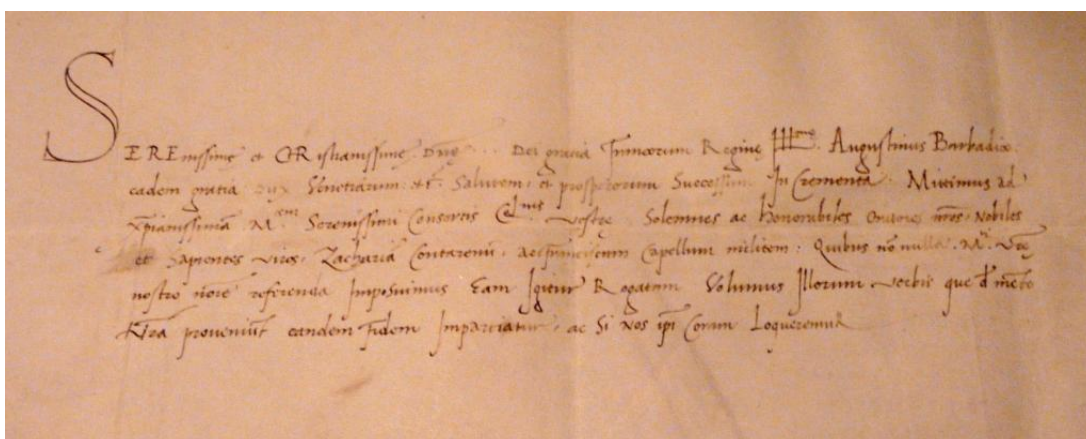 SEREnissime et CHRistianissime Dne .. Dei gracia Francorum Regine Ill. Augustinus Barbadico
eadem gratia Dux Venetiarum &c. Salutem, et prosperorum Successuum InCrementa. Mittimus ad
Xpianissimā M.em Serenissimi Consortis Cel.nis vestre Solemnes ac honorabiles Oratores nros. Nobiles
et Sapientes viros. Zachariā Contarenū. ac Capellum militem: Quibus nō nulla. M.ti vre
nostro noie referenda Imposuimus Eam Igitur Rogatam Volumus Illorum verbis que
nra eandem Fidem Impartiatur, ac Si Nos ipi Coram LoquereMuR